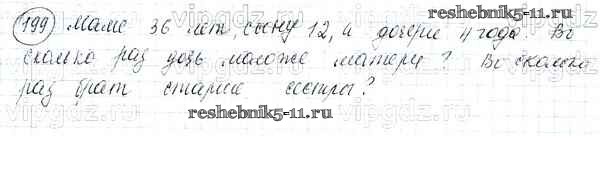 reshebnik5-11.ru
199 Маме 36 лет, сыну 12, а дочери 4 года. Во
сколько раз дочь моложе матери? Во сколько
раз брат старше сестры?
reshebnik5-11.ru